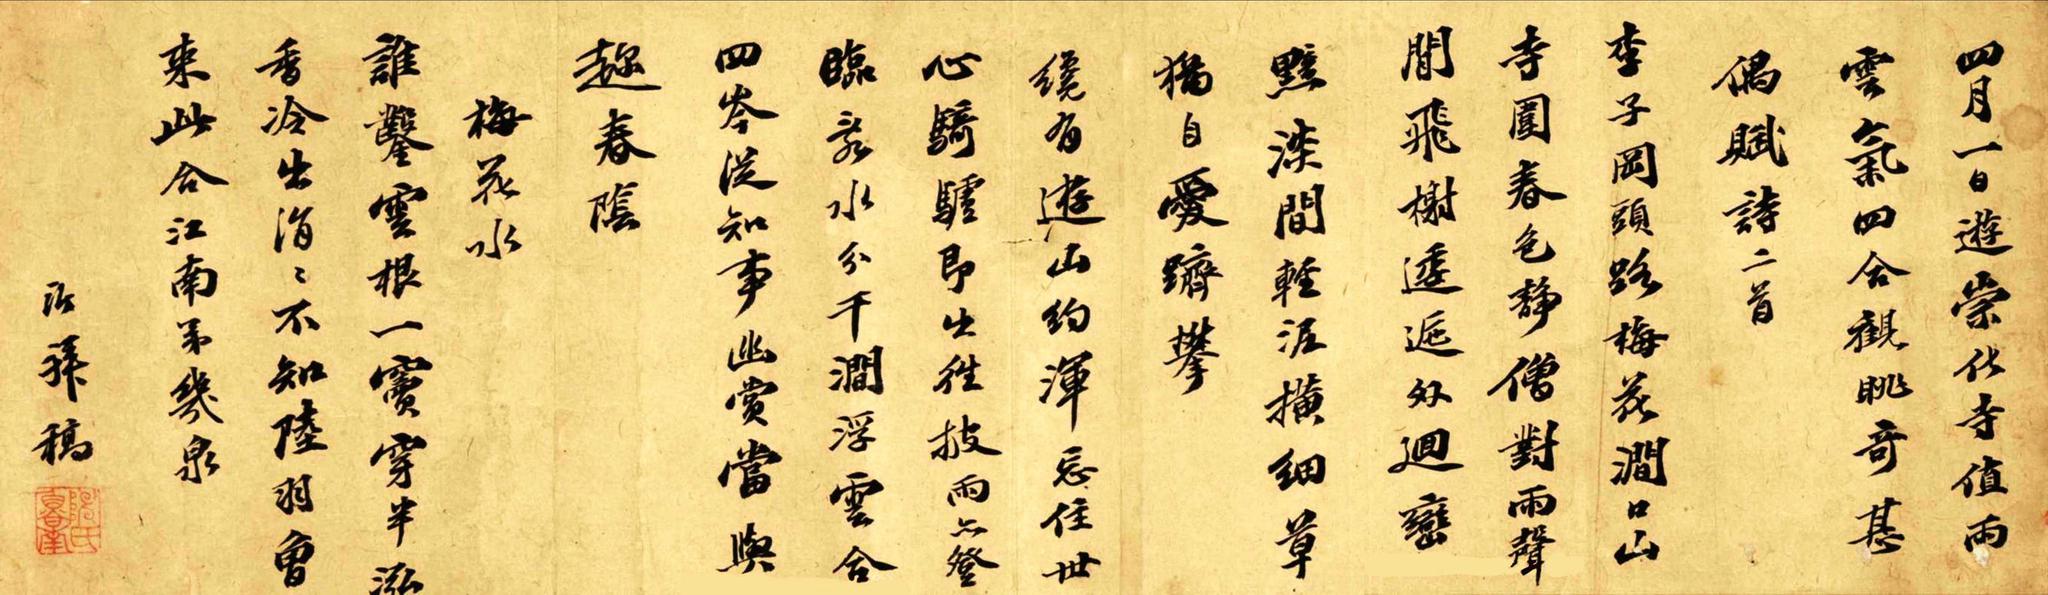 四月一日遊崇化寺值雨
雲氣四合觀眺奇甚
偶賦詩二首
李子岡頭路梅花澗口山
寺圍春色靜僧對雨聲
閒飛榭逶迤外迴巒
黯淡間輕泥橫細草
猶自愛躋攀
纔有遊山約渾忘住世
心騎驢即出往披雨亦登
臨茶水分千澗浮雲合
四岑從知事幽賞當與
趂春陰
梅花水
誰鑿雲根一竇穿半泓
香冷出涓〻不知陸羽曾
來此合江南第幾泉
沂拜稿